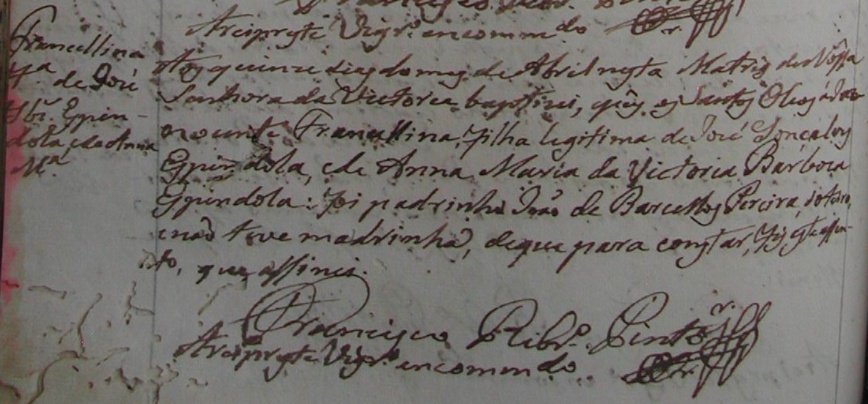 Arcipryte Vigr.º encommdo
Francellina
fa de José
Glz. Espin-
dola, e de Anna
Ma
Aos quinze dias do mez de Abril nesta Matriz da Nossa
Senhora da Victoria baptizei, e puz os Santos Oleos á
innocente Francellina, filha legitima de José Gonçalves
Espindola, e de Anna Maria da Victoria Barboza
Espindola: foi padrinho João de Barcellos Pereira, solteiro,
e naõ teve madrinha, de que para constar, fiz este assen-
to, que assinei.
Francisco Ribr.º Pinto
Arcipryte Vigr.º encommdo